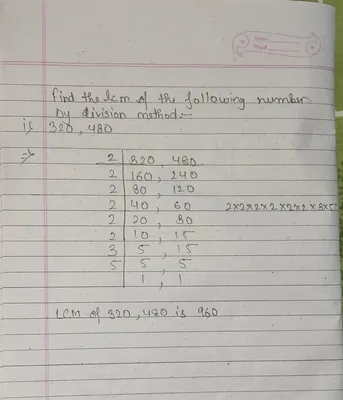 Date
Page
find the lcm of the following number
by division method:-
i} 320, 480
=> 2 | 320, 480
2 | 160, 240
2 | 80, 120
2 | 40, 60 2x2x2x2x2x2x3x5
2 | 20, 30
2 | 10, 15
3 | 5, 15
5 | 5, 5
1, 1
LCM of 320, 480 is 960